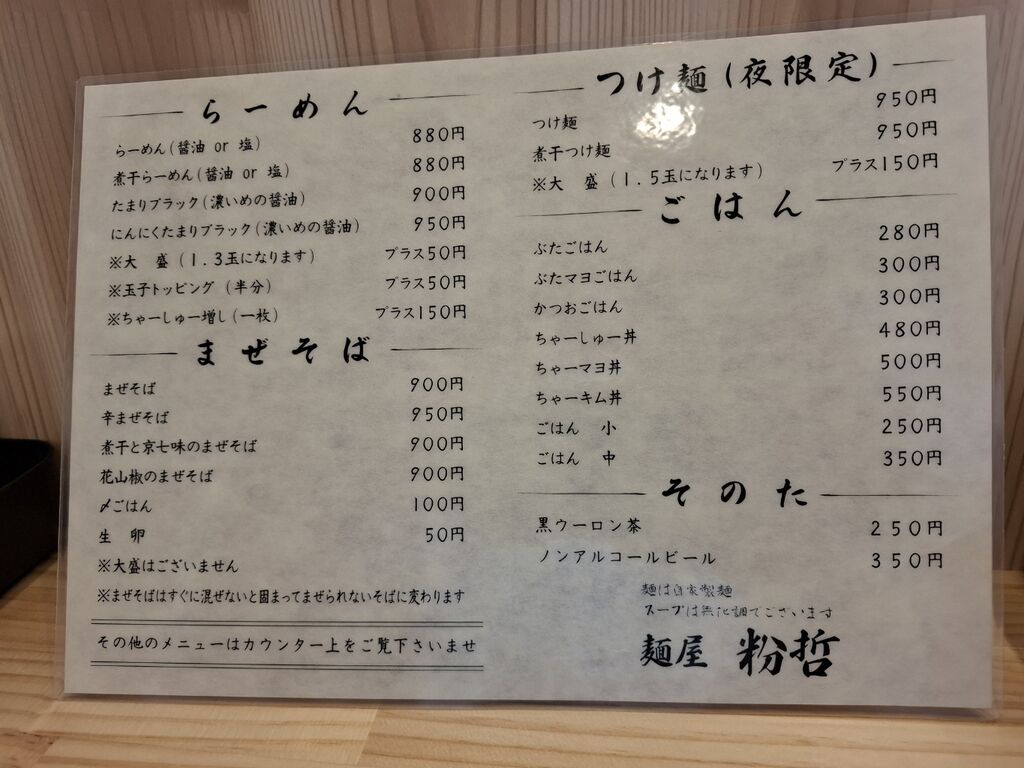 らーめん
らーめん(醤油 or 塩) 880円
煮干らーめん(醤油 or 塩) 880円
たまりブラック(濃いめの醤油) 900円
にんにくたまりブラック(濃いめの醤油) 950円
※大 盛 (1.3玉になります) プラス50円
※玉子トッピング (半分) プラス50円
※ちゃーしゅー増し(一枚) プラス150円
まぜそば
まぜそば 900円
辛まぜそば 950円
煮干と京七味のまぜそば 900円
花山椒のまぜそば 900円
〆ごはん 100円
生 卵 50円
※大盛はございません
※まぜそばはすぐに混ぜないと固まってまぜられないそばに変わります
その他のメニューはカウンター上をご覧下さいませ
つけ麺(夜限定)
つけ麺 950円
煮干つけ麺 950円
※大 盛 (1.5玉になります) プラス150円
ごはん
ぶたごはん 280円
ぶたマヨごはん 300円
かつおごはん 300円
ちゃーしゅー丼 480円
ちゃーマヨ丼 500円
ちゃーキム丼 550円
ごはん 小 250円
ごはん 中 350円
そのた
黒ウーロン茶 250円
ノンアルコールビール 350円
麺は自家製麺
スープは無化調でございます
麺屋 粉哲